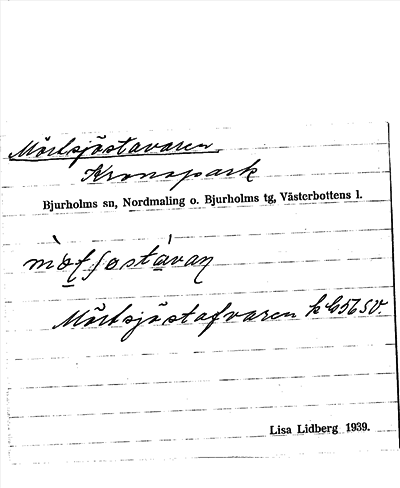 Mörtsjöstavaren
Kronopark
Bjurholms sn, Nordmaling o. Bjurholms tg, Västerbottens l.
Mörtsjöstafvaren k b56 SV.
Lisa Lidberg 1939.